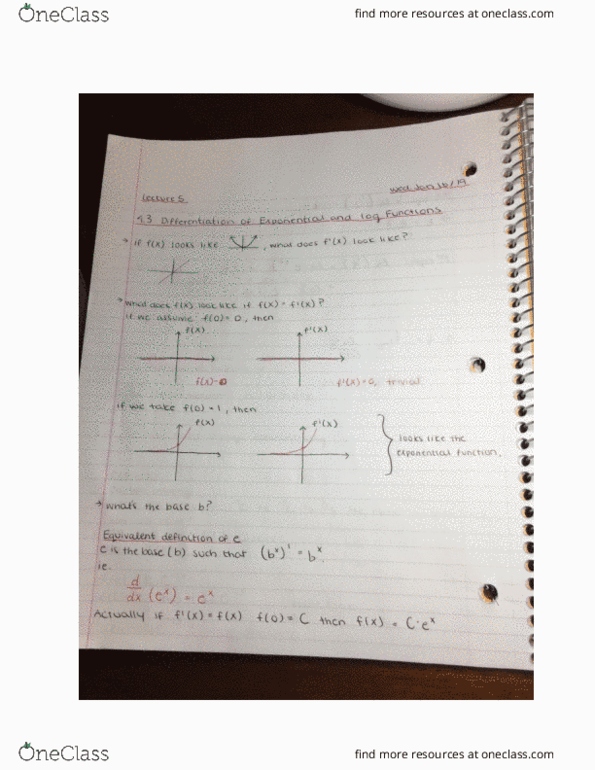 OneClass find more resources at oneclass.com
Wed Jan 16/19
Lecture 5
4.3 Differentiation of Exponential and Log Functions
* if f(x) looks like , what does f'(x) look like?
* what does f(x) look like if f(x) = f'(x)?
if we assume f(0) = 0, then
f(x) f'(x)
f(x)=0 f'(x)=0, trivial
if we take f(0) = 1, then
f(x) f'(x)
looks like the
exponential function.
* what's the base b?
Equivalent definition of e
e is the base (b) such that (bˣ)' = bˣ
ie.
d/dx (eˣ) = eˣ
Actually if f'(x) = f(x) f(0) = C then f(x) = C·eˣ
OneClass find more resources at oneclass.com